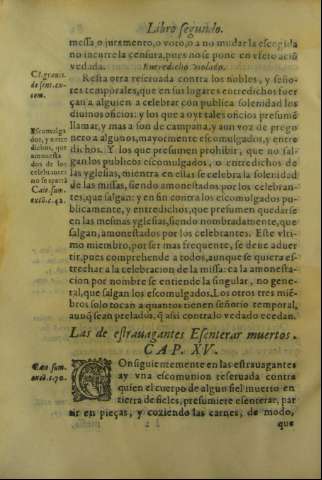 Libro segundo.
messa, o juramento, o voto, o a no mudar la escogida
no incurre la censura, pues no se pone en efeto acto
vedada. Entredicho violado.
Resta otra reseruada contra los nobles, y seño-
res temporales, que en sus lugares entredichos fuer
çan a alguien a celebrar con publica solenidad los
diuinos oficios: y los que a oyr tales oficios presumē
llamar, y mas a son de campana, y aun voz de prego
nero a algunos, mayormente escomulgados, y entre
dichos. Y los que presumen prohibir, que no sal-
gan los publicos escomulgados, o entredichos de
las yglesias, mientra en ellas se celebra la solenidad
de las missas, siendo amonestados por los celebran-
tes, que salgan: y en fin contra los escomulgados pu-
blicamente, y entredichos, que presumen quedarse
en las mesmas yglesias, siendo nombradamente, que
salgan, amonestados por los celebrantes. Este vlti-
mo miembro, por ser mas frequente, se deue aduer
tir, pues comprehende a todos, aunque se quiera es-
trechar a la celebracion de la missa: ca la amonesta-
cion por nombre se entiende la singular, no gene-
ral, que salgan los escomulgados. Los otros tres miē
bros solo tocan a quantos tienen señorio temporal,
aunq̃ sean prelados, q̃ assi contra lo vedado ecedan.
Cl. grauis.
de sent. ex-
com.
Escomulga
dos, y entre
dichos, que
amonesta
dos de los
celebrantes
no se partē
Caie. sum.
exco. c. 42.
Las de estrauagantes Esenterar muertos.
CAP. XV.
Caie. sum.
exco. c. 90.
COnsiguientemente en las estrauagantes
ay vna escomunion reseruada contra
quien el cuerpo de algun fiel muerto en
tierra de fieles, presumiere esenterar, par
tir en pieças, y coziendo las carnes, de modo,
que